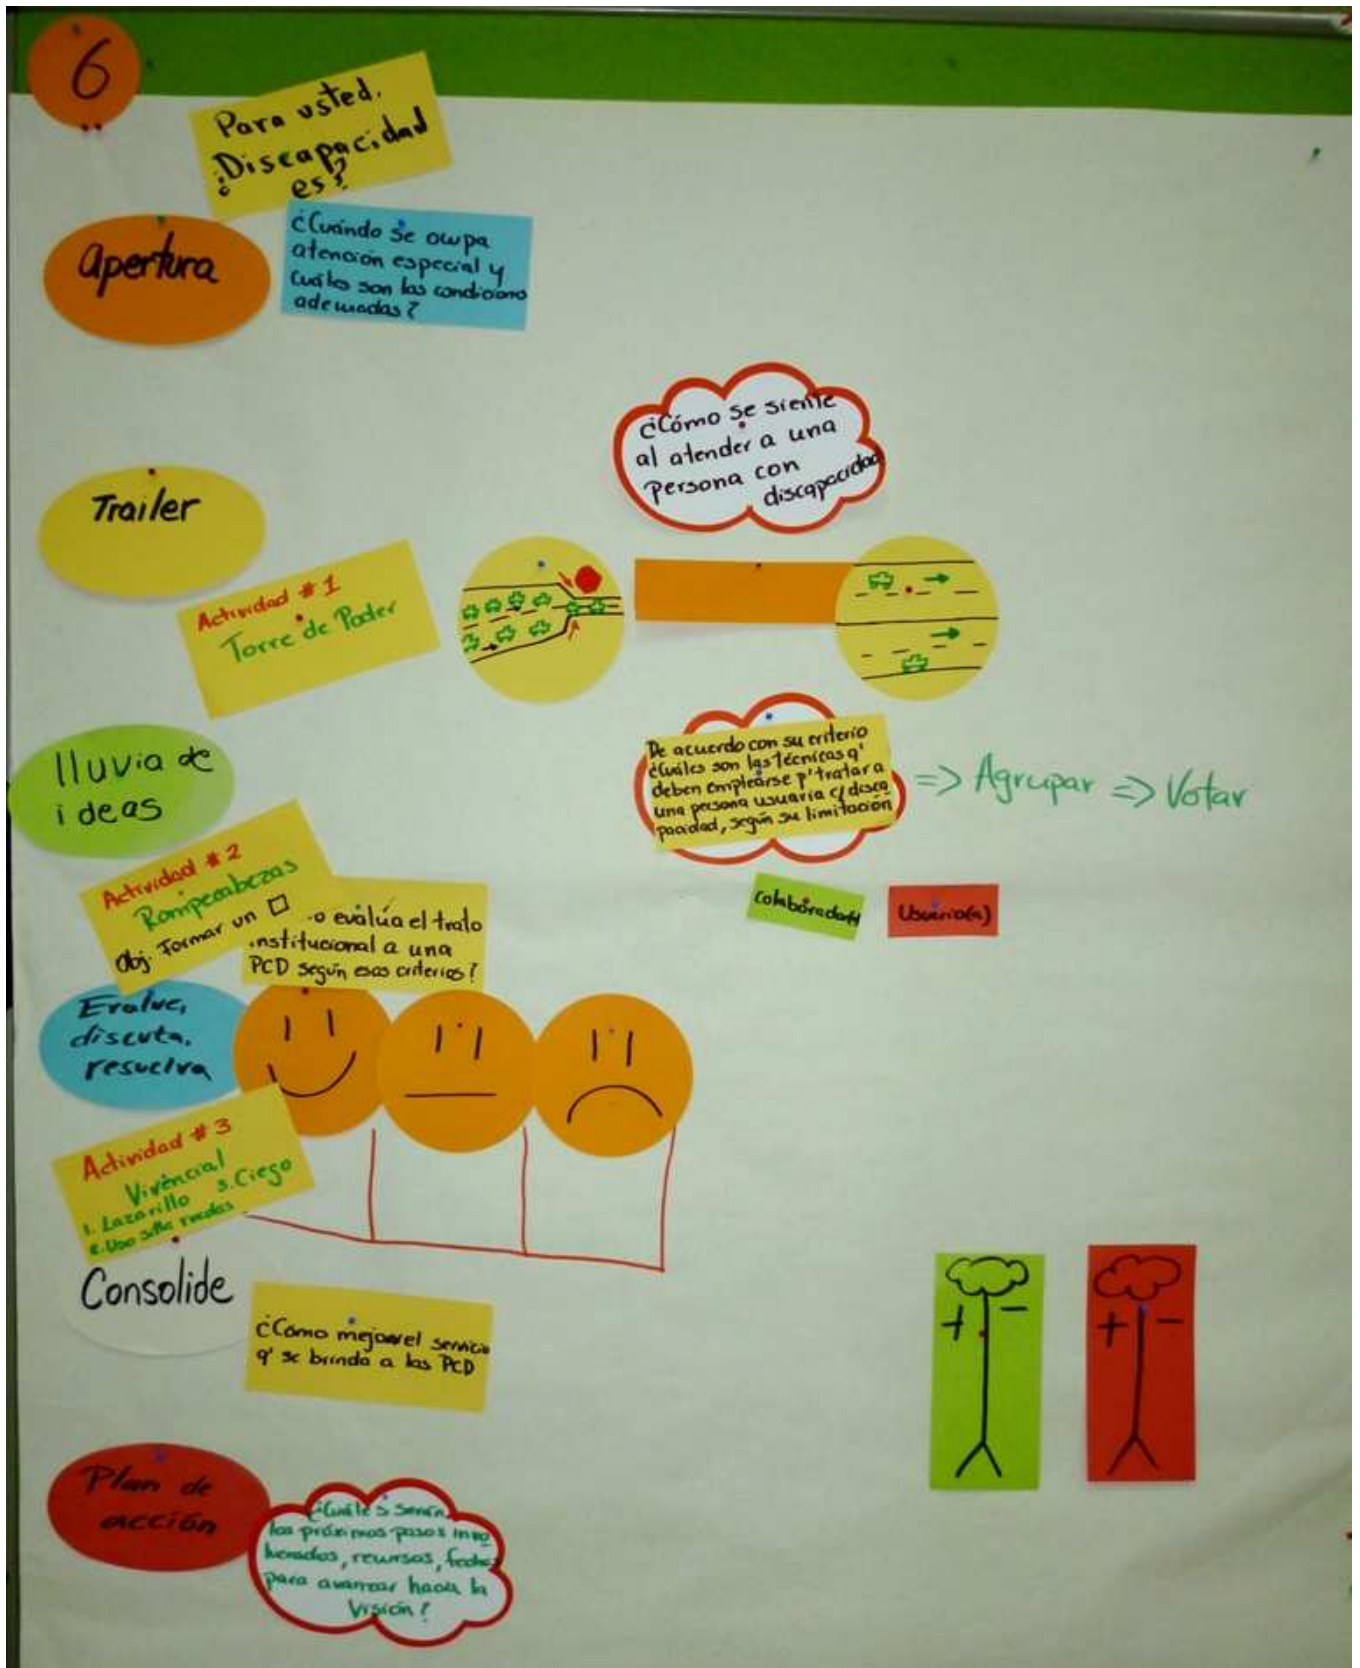 6
Para usted.
¿Discapacidad
es?
apertura
¿Cuándo se ocupa
atención especial y
cuáles son las condiciones
adecuadas?
¿Cómo se siente
al atender a una
persona con
discapacidad
Trailer
Actividad # 1
Torre de Poder
lluvia de
ideas
De acuerdo con su criterio
¿Cuáles son las técnicas q'
deben emplearse p' tratar a
una persona usuaria c/ disca
pacidad, según su limitación
=> Agrupar => Votar
Colaborador
Usuario(a)
Actividad # 2
Rompecabezas
Obj. Formar un
o evalúa el trato
institucional a una
PCD según esos criterios?
Evalue,
discuta,
resuelva
Actividad # 3
Vivencial
1. Lazarillo 3. Ciego
2. Uso silla ruedas
Consolide
¿Cómo mejorar el servicio
q' se brinda a las PCD
+ -
+ -
Plan de
acción
¿Cuáles serán
los próximos pasos invo
lucrados, recursos, fechas
para avanzar hacia la
Visión?